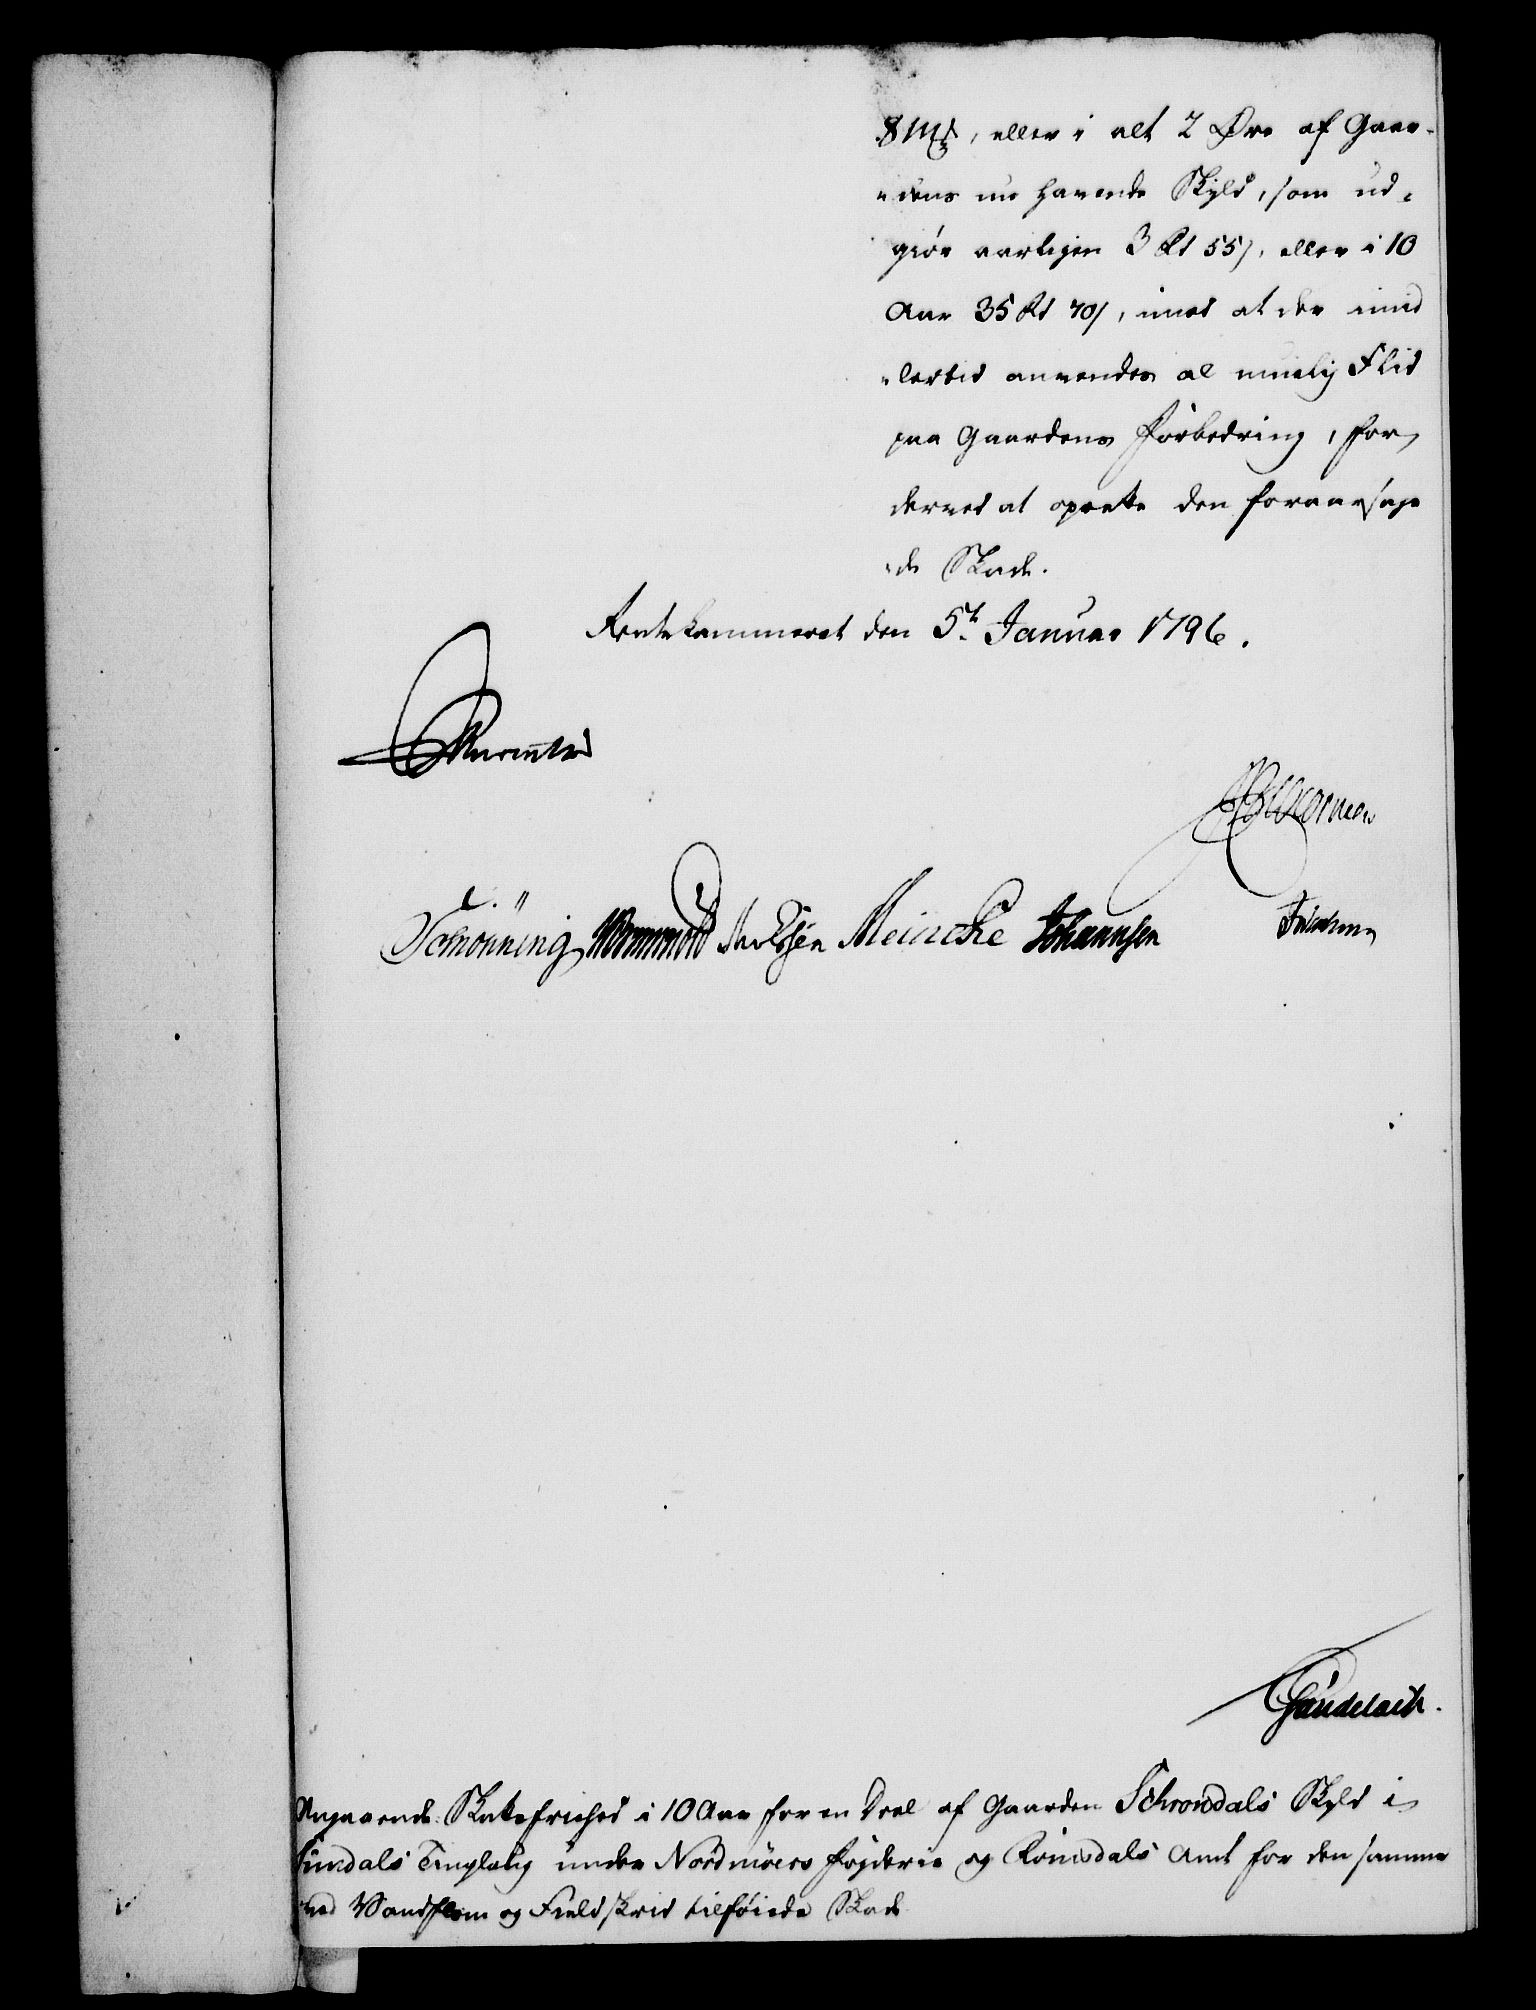 8 mk, eller i alt 2 Øre af Gaar-
dens nu havende Skyld, som ud-
giør aarligen 3 Rd 55 s, eller i 10
Aar 35 Rd 70 s, imod at der imid
lertid anvendes al muelig Flid
paa Gaardens Forbedring, for
derved at oprette den foraarsage
de Skade.
Rentekammeret den 5te Januar 1796.
Schönning Wormskiold Meincke Johannsen
Gundelach.
Angaaende Skattefriehed i 10 Aar for en Deel af Gaarden Schrondals Skyld i
Sundals Tinglaug under Nordmøers Fogderie og Romsdals Amt for den samme
ved Vandflom og Fieldskred tilføiede Skade